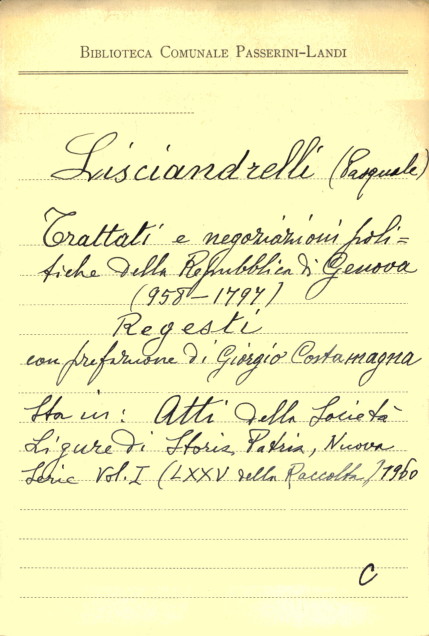 BIBLIOTECA COMUNALE PASSERINI-LANDI
Lisciandrelli (Pasquale)
Trattati e negoziazioni poli=
tiche della Repubblica di Genova
(958-1797)
Regesti
con prefazione di Giorgio Costamagna
Sta in: Atti della Società
Ligure di Storia Patria, Nuova
Serie Vol. I (LXXV della Raccolta) 1960
C